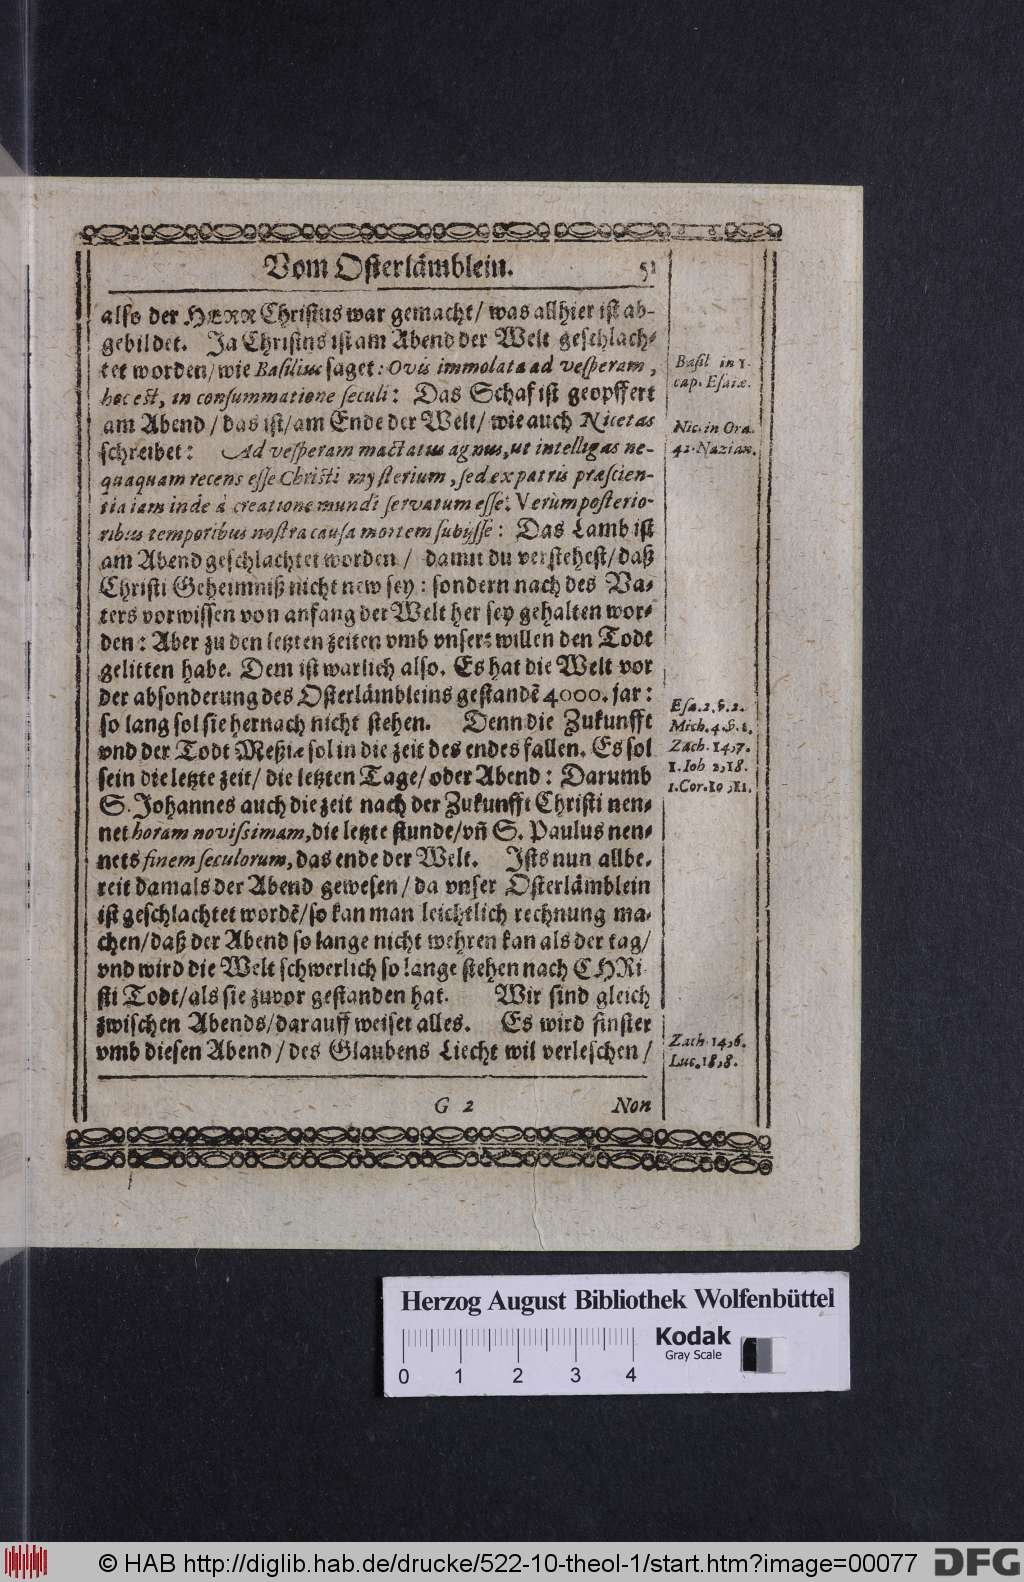 Vom Osterlämblein. 51
also der HERR Christus war gemacht/ was allhier ist ab-
gebildet. Ja Christus ist am Abend der Welt geschlach-
tet worden/ wie Basilius saget: Ovis immolata ad vesperam,
hoc est, in consummatione seculi: Das Schaf ist geopffert
am Abend / das ist/ am Ende der Welt/ wie auch Nicetas
schreibet: Ad vesperam mactatus agnus, ut intelligas ne-
quaquam recens esse Christi mysterium, sed ex patris præscien-
tia iam inde à creatione mundi servatum esse: Verùm posterio-
ribus temporibus nostra causa mortem subijsse: Das Lamb ist
am Abend geschlachtet worden / damit du verstehest/ daß
Christi Geheimniß nicht new sey: sondern nach des Va-
ters vorwissen von anfang der Welt her sey gehalten wor-
den: Aber zu den letzten zeiten vmb vnser willen den Todt
gelitten habe. Dem ist warlich also. Es hat die Welt vor
der absonderung des Osterlämbleins gestandē 4000. jar:
so lang sol sie hernach nicht stehen. Denn die Zukunfft
vnd der Todt Meßiæ sol in die zeit des endes fallen. Es sol
sein die letzte zeit/ die letzten Tage/ oder Abend: Darumb
S. Johannes auch die zeit nach der Zukunfft Christi nen-
net horam novissimam, die letzte stunde/ vn̄ S. Paulus nen-
nets finem seculorum, das ende der Welt. Ists nun allbe-
reit damals der Abend gewesen/ da vnser Osterlämblein
ist geschlachtet wordē/ so kan man leichtlich rechnung ma-
chen/ daß der Abend so lange nicht wehren kan als der tag/
vnd wird die Welt schwerlich so lange stehen nach CHRi-
sti Todt/ als sie zuvor gestanden hat. Wir sind gleich
zwischen Abends/ darauff weiset alles. Es wird finster
vmb diesen Abend / des Glaubens Liecht wil verleschen /
G 2 Non
Basil in 1.
cap. Esaiæ.
Nic. in Ora.
42. Nazian.
Esa. 2. §. 2.
Mich. 4. §. 1.
Zach. 14, 7.
1. Ioh 2, 18.
1. Cor. 10, 11.
Zach. 14, 6.
Luc. 18, 8.
Herzog August Bibliothek Wolfenbüttel
Kodak
Gray Scale
0 1 2 3 4
© HAB http://diglib.hab.de/drucke/522-10-theol-1/start.htm?image=00077
DFG